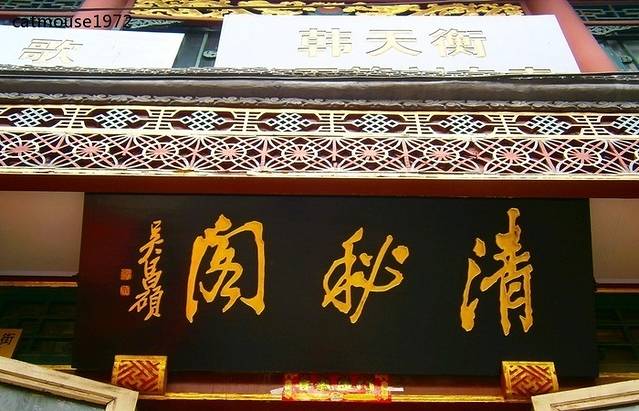 catmouse1972
歌
韩天衡
清秘阁
吴昌硕
街